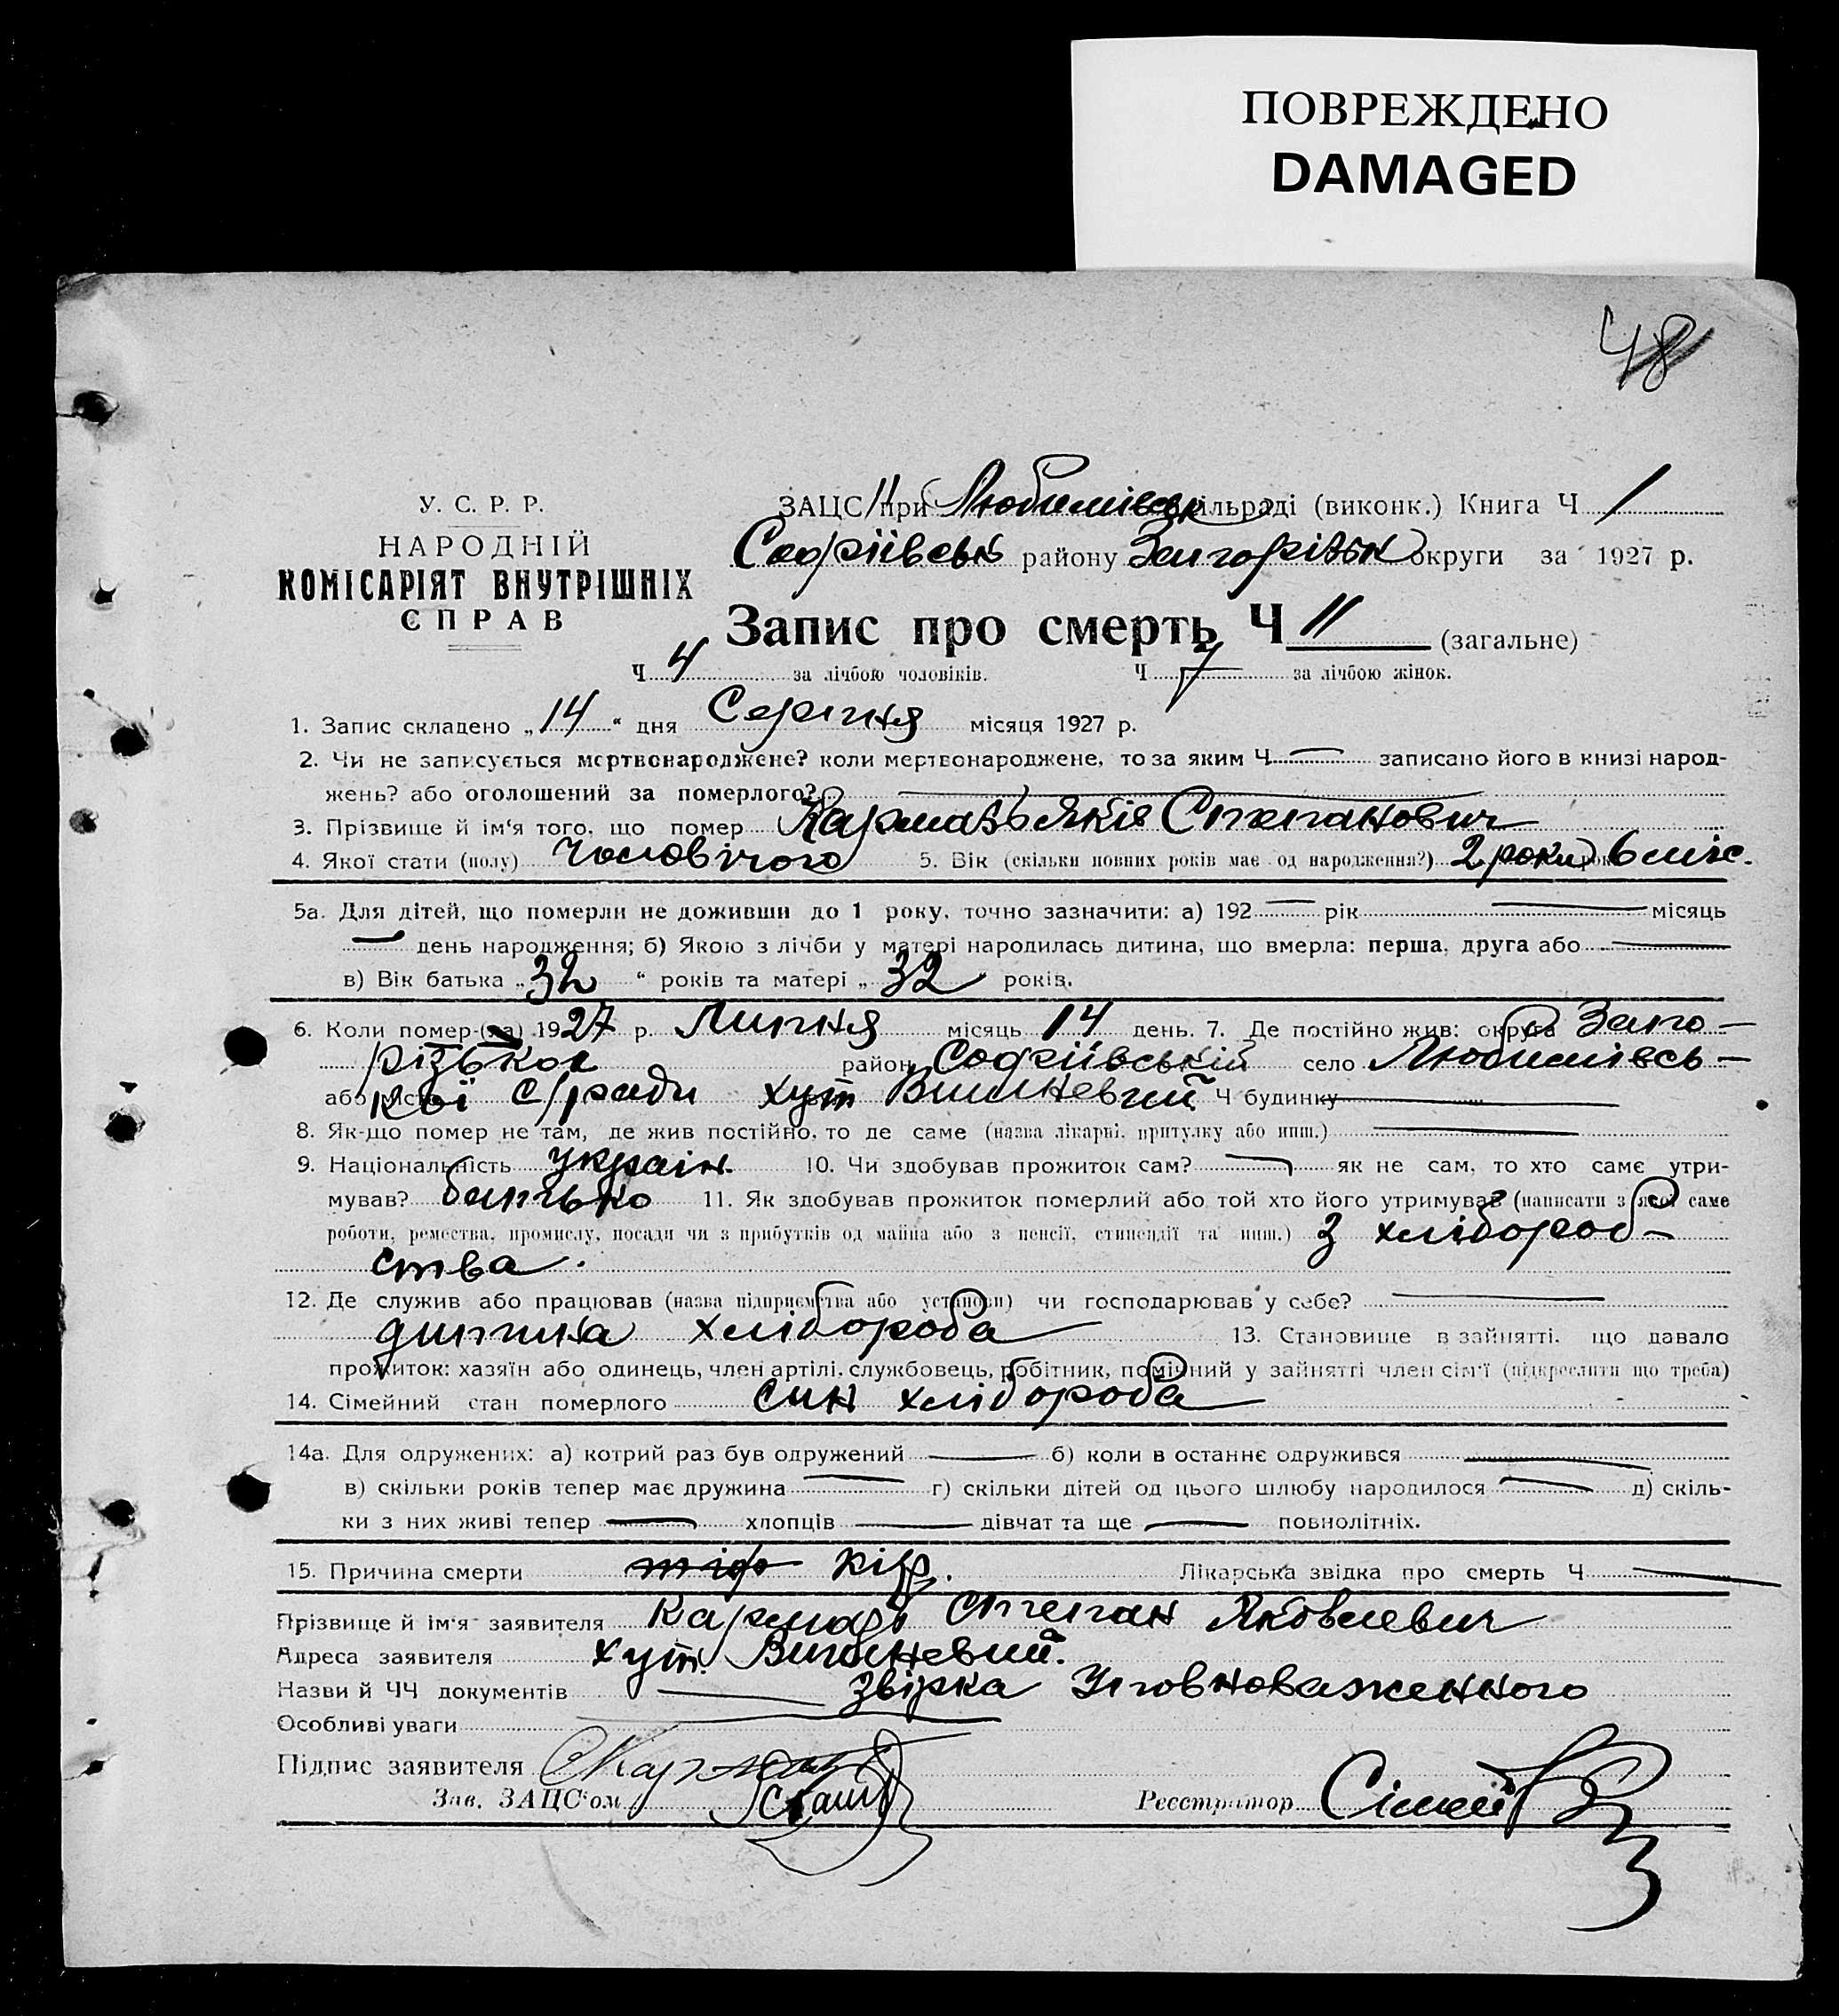 ПОВРЕЖДЕНО
DAMAGED
48
У. С. Р. Р.
НАРОДНІЙ
КОМІСАРІЯТ ВНУТРІШНІХ
СПРАВ
ЗАЦС при Любимівськ сільраді (виконк.) Книга Ч 1
Софіївськ району Запоріжськ округи за 1927 р.
Запис про смерть Ч 11 (загальне)
Ч 4 за лічбою чоловіків. Ч 7 за лічбою жінок.
1. Запис складено „14“ дня Серпня місяця 1927 р.
2. Чи не записується мертвонароджене? коли мертвонароджене, то за яким Ч — записано його в книзі народ-
жень? або оголошений за померлого? —
3. Прізвище й ім'я того, що помер Кармазь Яків Степанович
4. Якої стати (полу) чоловічого 5. Вік (скільки повних років має од народження?) 2 роки 6 міс.
5а. Для дітей, що померли не доживши до 1 року, точно зазначити: а) 192 — рік — місяць
— день народження; б) Якою з лічби у матері народилась дитина, що вмерла: перша, друга або —
в) Вік батька „32“ років та матері „32“ років.
6. Коли помер-(ла) 1927 р. Липня місяць 14 день. 7. Де постійно жив: округа Запо-
різької район Софіївській село Любимівсь-
кої с/ради хут Вишневий Ч будинку —
8. Як-що помер не там, де жив постійно, то де саме (назва лікарні, притулку або инш.) —
9. Національність україн. 10. Чи здобував прожиток сам? — як не сам, то хто саме утри-
мував? батько 11. Як здобував прожиток померлий або той хто його утримував (написати з якої саме
роботи, ремества, промислу, посади чи з прибутків од майна або з пенсії, стипендії та инш.) З хлібороб-
ства.
12. Де служив або працював (назва підприємства або установи) чи господарював у себе? —
дитина хлібороба 13. Становище в зайнятті, що давало
прожиток: хазяїн або одинець, член артілі, службовець, робітник, помічний у зайнятті член сім'ї (підкреслити що треба)
14. Сімейний стан померлого син хлібороба
14а. Для одружених: а) котрий раз був одружений — б) коли в останнє одружився —
в) скільки років тепер має дружина — г) скільки дітей од цього шлюбу народилося — д) скіль-
ки з них живі тепер — хлопців — дівчат та ще — повнолітніх.
15. Причина смерти тіф кір. Лікарська звідка про смерть Ч —
Прізвище й ім'я заявителя Кармазь Степан Яковлевич
Адреса заявителя хут. Вишневий.
Назви й ЧЧ документів — Звірка Уповноваженного
Особливі уваги —
Підпис заявителя
Зав. ЗАЦС'ом Реєстратор